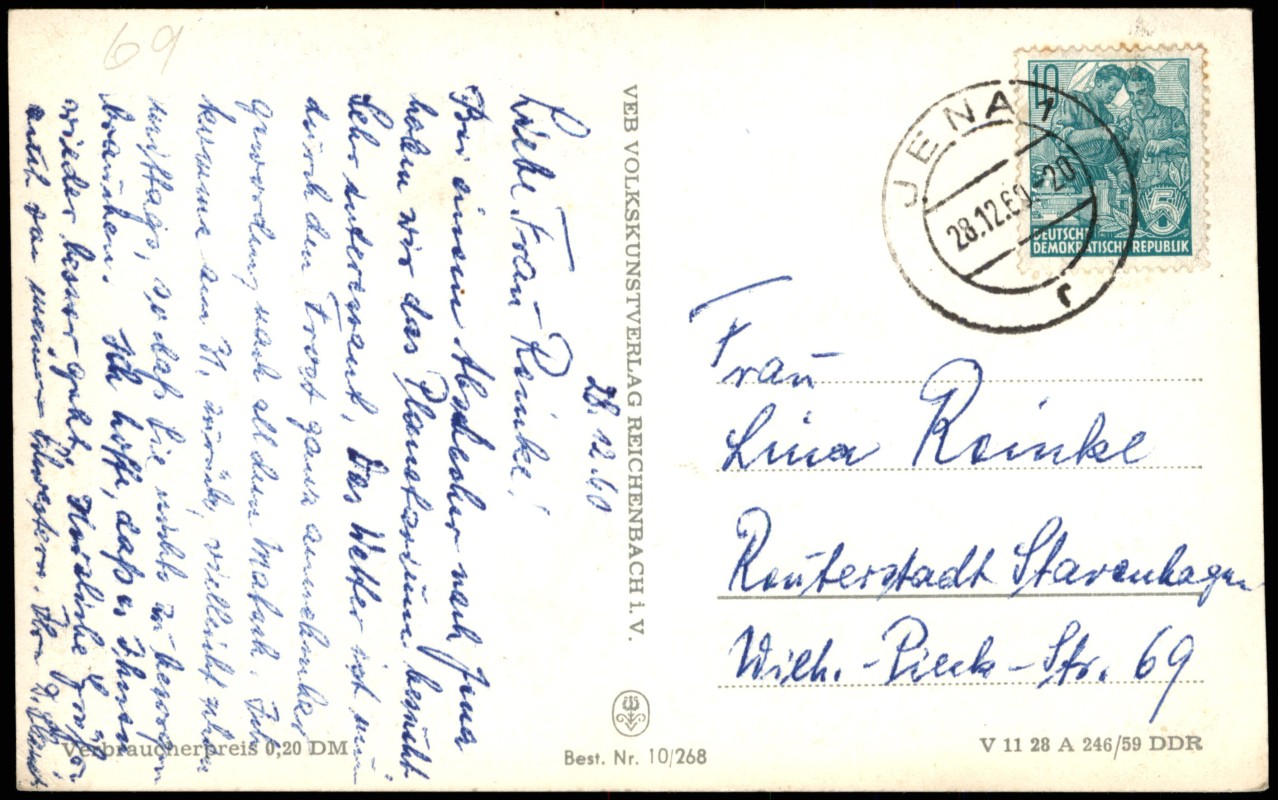 69
28.12.60
Liebe Frau Reinke!
Bei einem Abstecher nach Jena
haben wir das Planetarium besucht
Sehr interessant. Das Wetter ist nun
durch den Frost ganz annehmbar
geworden, nach all dem Matsch. Ich
komme am 31. zurück, vielleicht schon
mittags, so daß Sie nichts zu besorgen
brauchen. Ich hoffe, daß es Ihnen
wieder besser geht. Herzliche Grüße
auch von meinen Ihr
VEB VOLKSKUNSTVERLAG REICHENBACH i. V.
Verbraucherpreis 0,20 DM
Best. Nr. 10/268
V 11 28 A 246/59 DDR
JENA 1
28.12.60.-20
r
10
5
DEUTSCHE
DEMOKRATISCHE REPUBLIK
Frau
Lina Reinke
Reuterstadt Stavenhagen
Wilh.-Pieck-Str. 69